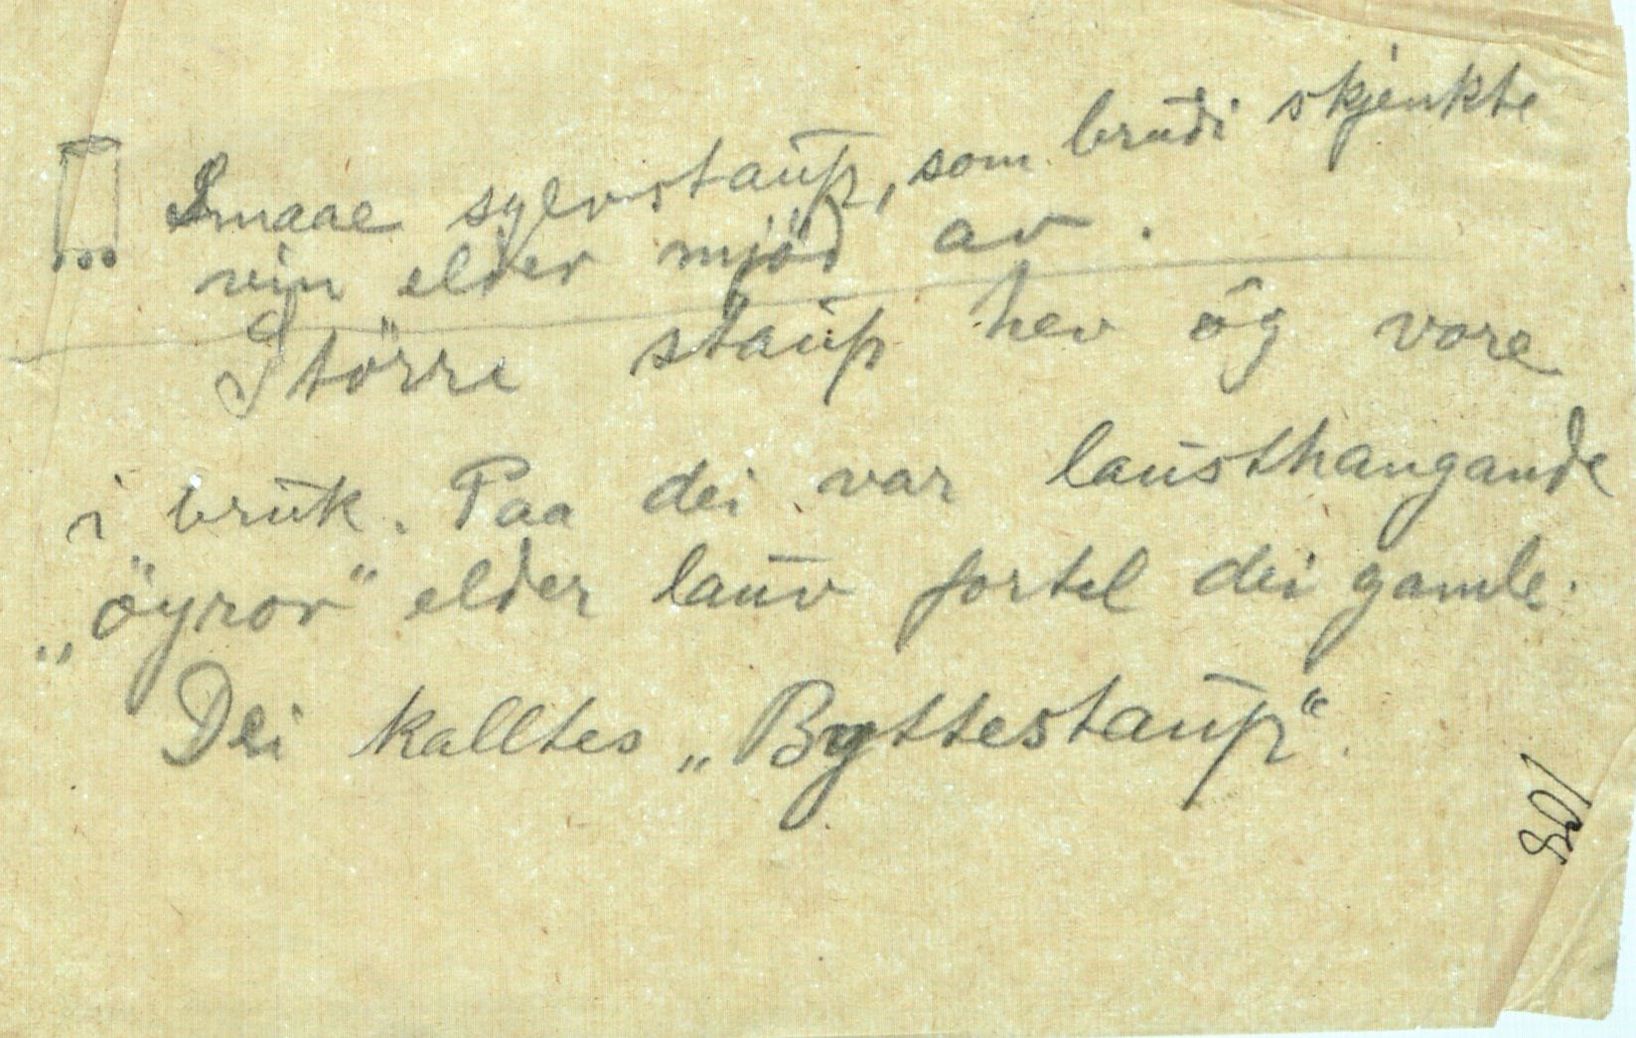 Smaae sylvstaup, som brudi skjenkte
vin elder mjöd av.
Större staup hev óg vore
i bruk. Paa dei var lausthangande
„öyror" elder lauv fortel dei gamle.
Dei kalltes „Byttestaup".
108